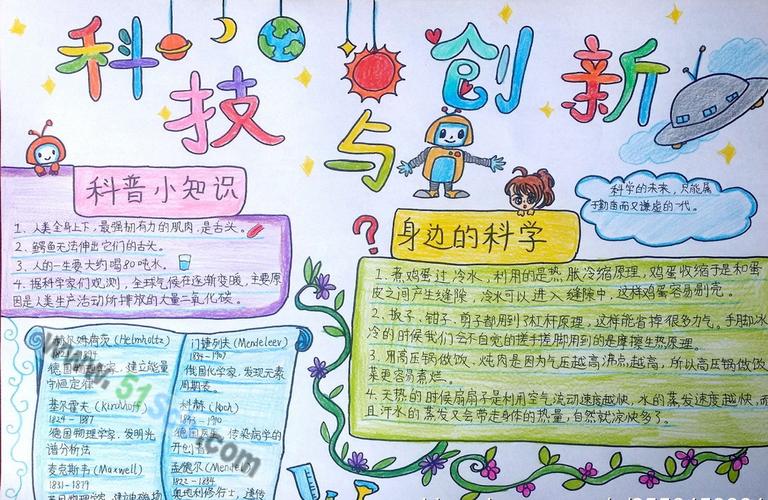 科技与创新
科普小知识
1、人类全身上下，最强韧有力的肌肉，是舌头。
2、鳄鱼无法伸出它们的舌头。
3、人的一生要大约喝80吨水。
4、据科学家们观测，全球气候在逐渐变暖，主要原
因是人类生产活动所排放的大量二氧化碳。
科学的未来，只能属
于勤奋而又谦虚的一代。
身边的科学
1、煮鸡蛋过冷水，利用的是热胀冷缩原理，鸡蛋收缩于是和蛋
皮之间产生缝隙，冷水可以进入缝隙中，这样鸡蛋容易剥壳。
2、扳子、钳子、剪子都用到了杠杆原理，这样能省掉很多力气。手脚冰
冷的时候我们会不自觉的搓手搓脚用到的是摩擦生热原理。
3、用高压锅做饭、炖肉是因为气压越高沸点越高，所以高压锅做饭
菜更容易煮烂。
4、天热的时候扇扇子是利用空气流动速度越快，水的蒸发速度越快，而
且汗水的蒸发又会带走身体的热量，自然就凉快多了。
赫尔姆荷茨 (Helmholtz)
1894
德国 学家，建立能量
守恒定律
基尔霍夫 (Kirchhoff)
1824-1887
德国物理学家，发明光
谱分析法
麦克斯韦 (Maxwell)
1831-1879
门捷列夫 (Mendeleev)
1834-1907
俄国化学家，发现元素
周期表。
科赫 (Koch)
1843-1910
德国医 传染病学的
开创者
孟德尔 (Mendel)
1822-1884
奥地利修行士，遗传